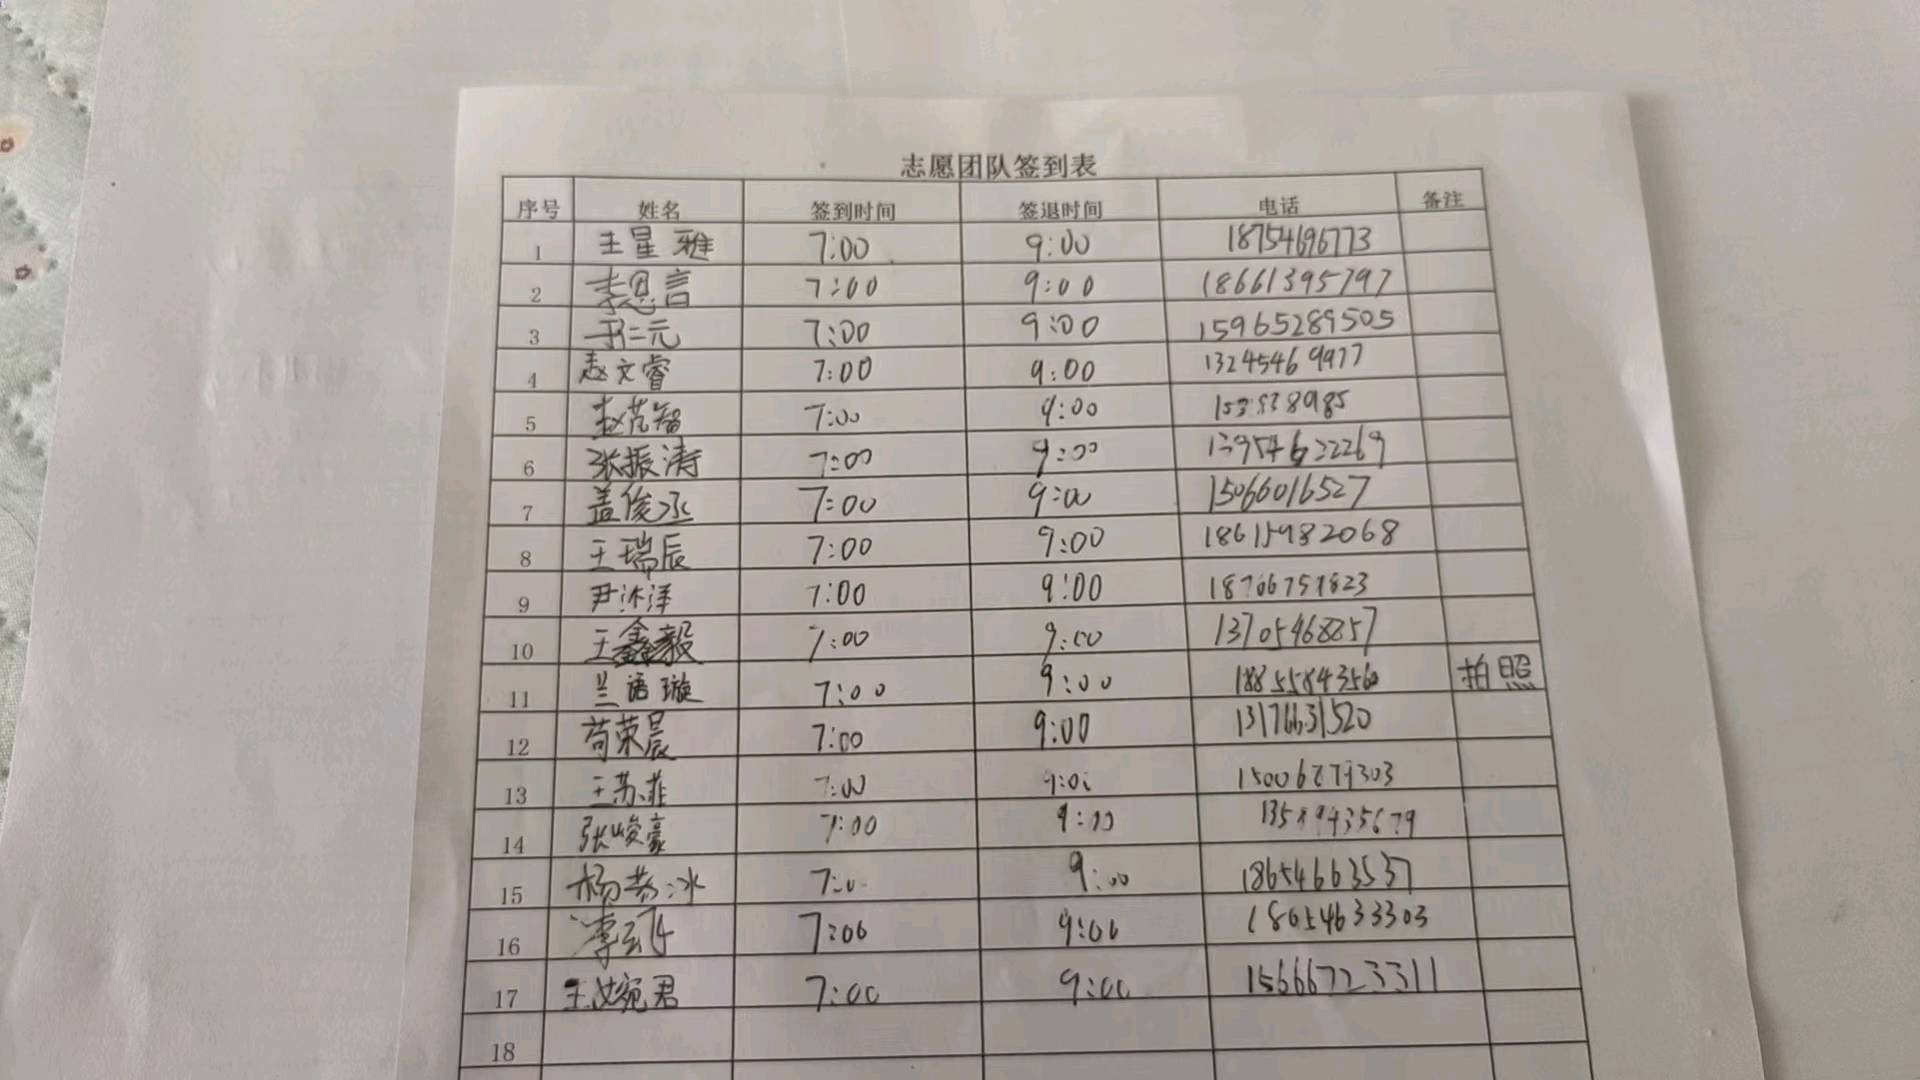 志愿团队签到表
序号 姓名 签到时间 签退时间 电话 备注
1 王星雅 7:00 9:00 18754696773
2 李思言 7:00 9:00 18661395797
3 于仁元 7:00 9:00 15965289505
4 赵文睿 7:00 9:00 13245469977
5 赵梵智 7:00 9:00
6 张振涛 7:00 9:00 13954622269
7 盖俊丞 7:00 9:00 15066016527
8 王瑞辰 7:00 9:00 18615982068
9 尹沐泽 7:00 9:00 18706751823
10 王鑫毅 7:00 9:00 13705468857
11 兰语璇 7:00 9:00 18855843560 拍照
12 苟荣晨 7:00 9:00 13176631520
13 王苏菲 7:00 9:00
14 张峻豪 7:00 9:00
15 杨 冰 9:00 18654663537
16 李 7:00 9:00 18654633303
17 王婉君 7:00 9:00 15666723311
18